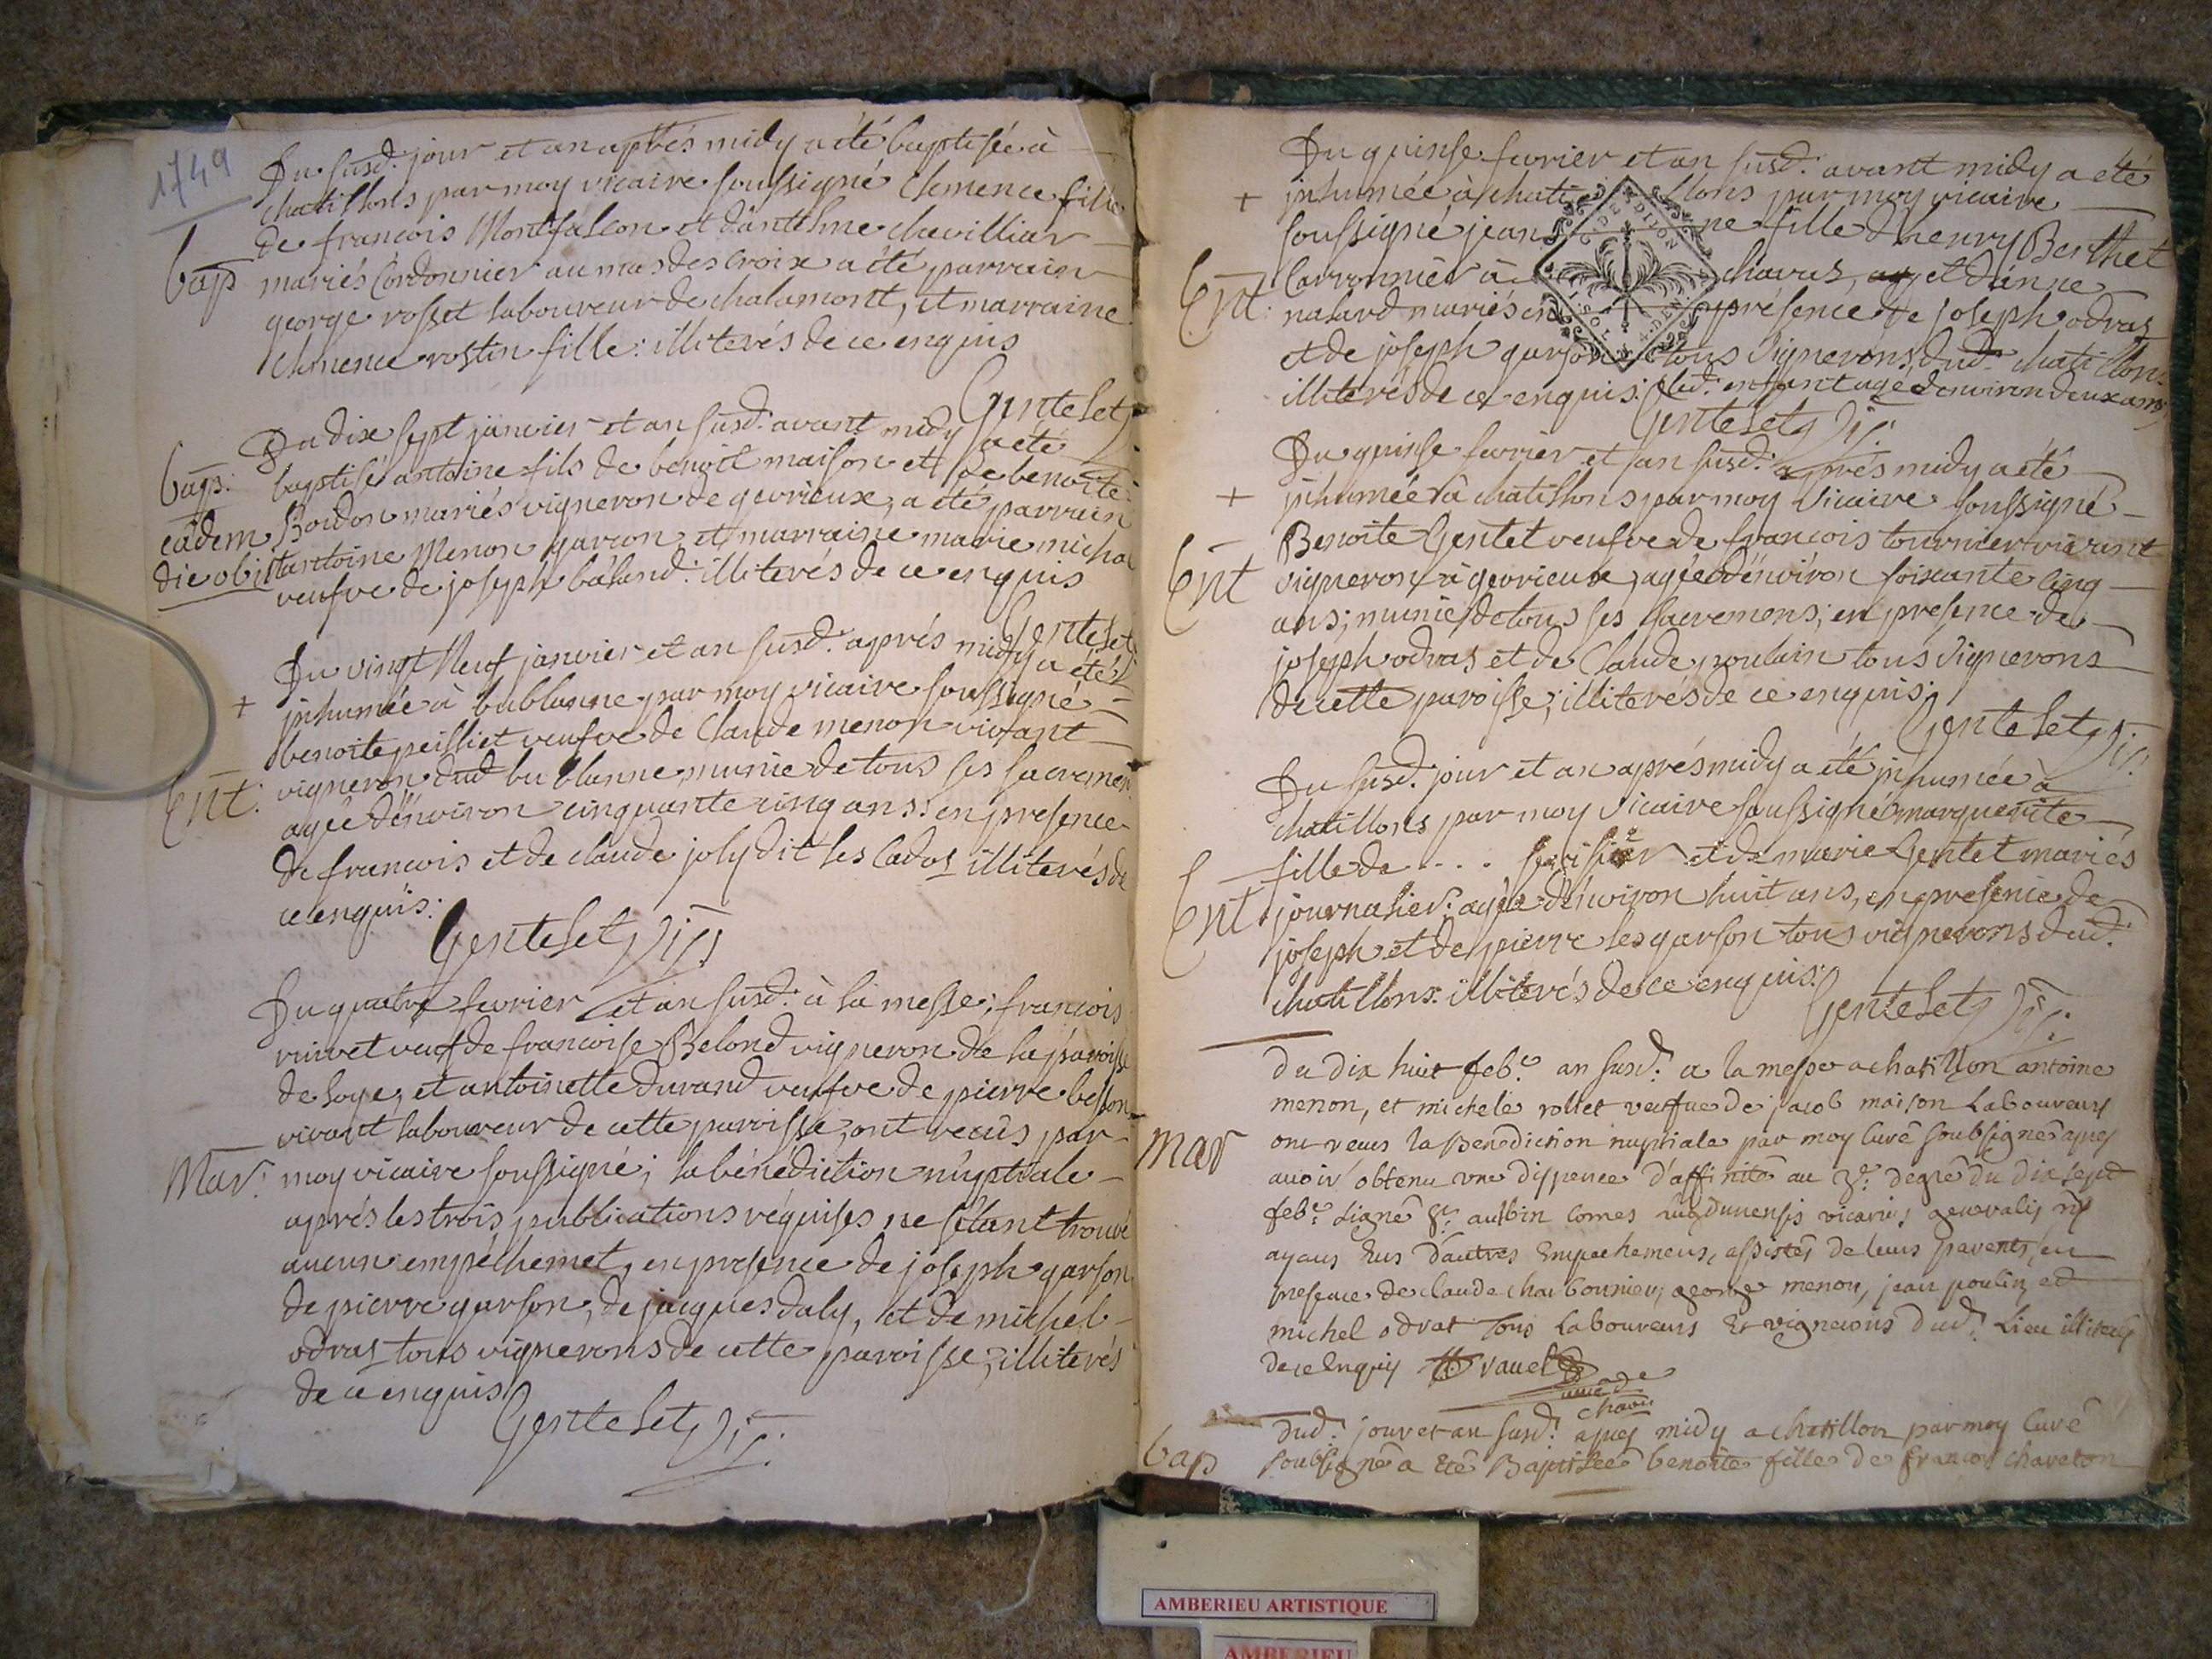 1749
Du susd. jour et an aprés midy a été baptisée à
chatillons par moy vicaire soussigné Clemence fille
de francois Montfalcon et d'antelme chevilliar
bap mariés Cordonnier au mas des Croix a été parrain
george rosset laboureur de chalamont, et marraine
Clemence rostin fille: illiterés de ce enquis
Gentelet
Du dix sept janvier et an susd. avant midy a été
bap: baptisé antoine fils de benoit maison et de benoite
eâdem Boudon mariés vigneron de gevrieux, a été parrain
die obiit antoine Menon garcon et marraine marie micha
veufve de joseph baland: illiterés de ce enquis
Gentelet
Du vingt Neuf janvier et an susd. aprés midy a été
+ inhumée à bublanne par moy vicaire soussigné
benoite peilliet veufve de Claude menon vivant
Ent: vigneron dud bublanne munie de tous ses sacremen
agée d'environ cinquante cinq ans: en presence
de francois et de claude joly dit les Cados illiterés de
ce enquis:
Gentelet Vic.
Du quatre fevrier et an susd. à la messe, francois
rivet veuf de francoise Belond vigneron de la paroisse
de loye, et antoinette durand veufve de pierre besson
vivant laboureur de cette paroisse, ont recûs par
Mar: moy vicaire soussigné; la bénédiction nuptiale
aprés les trois publications réquises ne s'étant trouvé
aucun empéchemet, en presence de joseph garson
de pierre garson, de jacques daly, et de michel
odras tous vignerons de cette paroisse, illiterés
de ce enquis
Gentelet Vic.
Du quinse fevrier et an susd. avant midy a été
+ inhumée à chatillons par moy vicaire
soussigné jeanne fille d'henry Berthet
Ent: Carronnier à chavus, et d'anne
nalard mariés en présence de joseph odras
et de joseph garson tous vignerons dud. chatillons
illiterés de ce enquis: led. enfant agé d'environ deux ans
Gentelet Vic.
Du quinse fevrier et an susd. aprés midy a été
+ inhumée à chatillons par moy Vicaire soussigné
Benoite Gentet veufve de francois tournier vivant
Ent vigneron à gevrieux, agée d'environ soixante cinq
ans; munie de tous ses sacremens; en presence de
joseph odras et de Claude poulain tous vignerons
de cette paroisse; illiterés de ce enquis:
Gentelet Vic.
Du susd. jour et an aprés midy a été inhumée à
chatillons par moy Vicaire soussigné marguerite
fille de . . . et de marie Gentet mariés
Ent journalier: agée d'environ huit ans, en presence de
joseph et de pierre les garson tous vignerons dud.
chatillons: illiterés de ce enquis:
Gentelet Vic.
du dix huit feb.e an susd. a la messe a chatillon antoine
menon, et michele rollet veufve de jacob maison Laboureurs
mar ont receus la Benediction nuptiale par moy Curé soubsigné apres
avoir obtenu une dispence d'affinité au 3.e degré du dix sept
feb.e signé aubin comes Lugdunensis vicarius generalis
ayans eus d'autres Empechemens, assistés de leurs parents, en
presence de claude charbonnier, george menon, jean poulin, et
michel odrat tous Laboureurs Et vignerons dud. Lieu illiterés
de ce Enquis ravel
curé de
chavu
dud. jour et an susd. apres midy a chatillon par moy Curé
bap soubsigné a Eté Baptisée benoite fille de francois chareton
AMBERIEU ARTISTIQUE
AMBERIEU